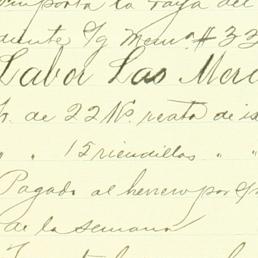 importa la raya del
diente S/g Memo. # 33
Labor Las Merc
h. de 22 No. reata de ix
" " 15 riendillas " "
Pagado al herrero por
de la semana